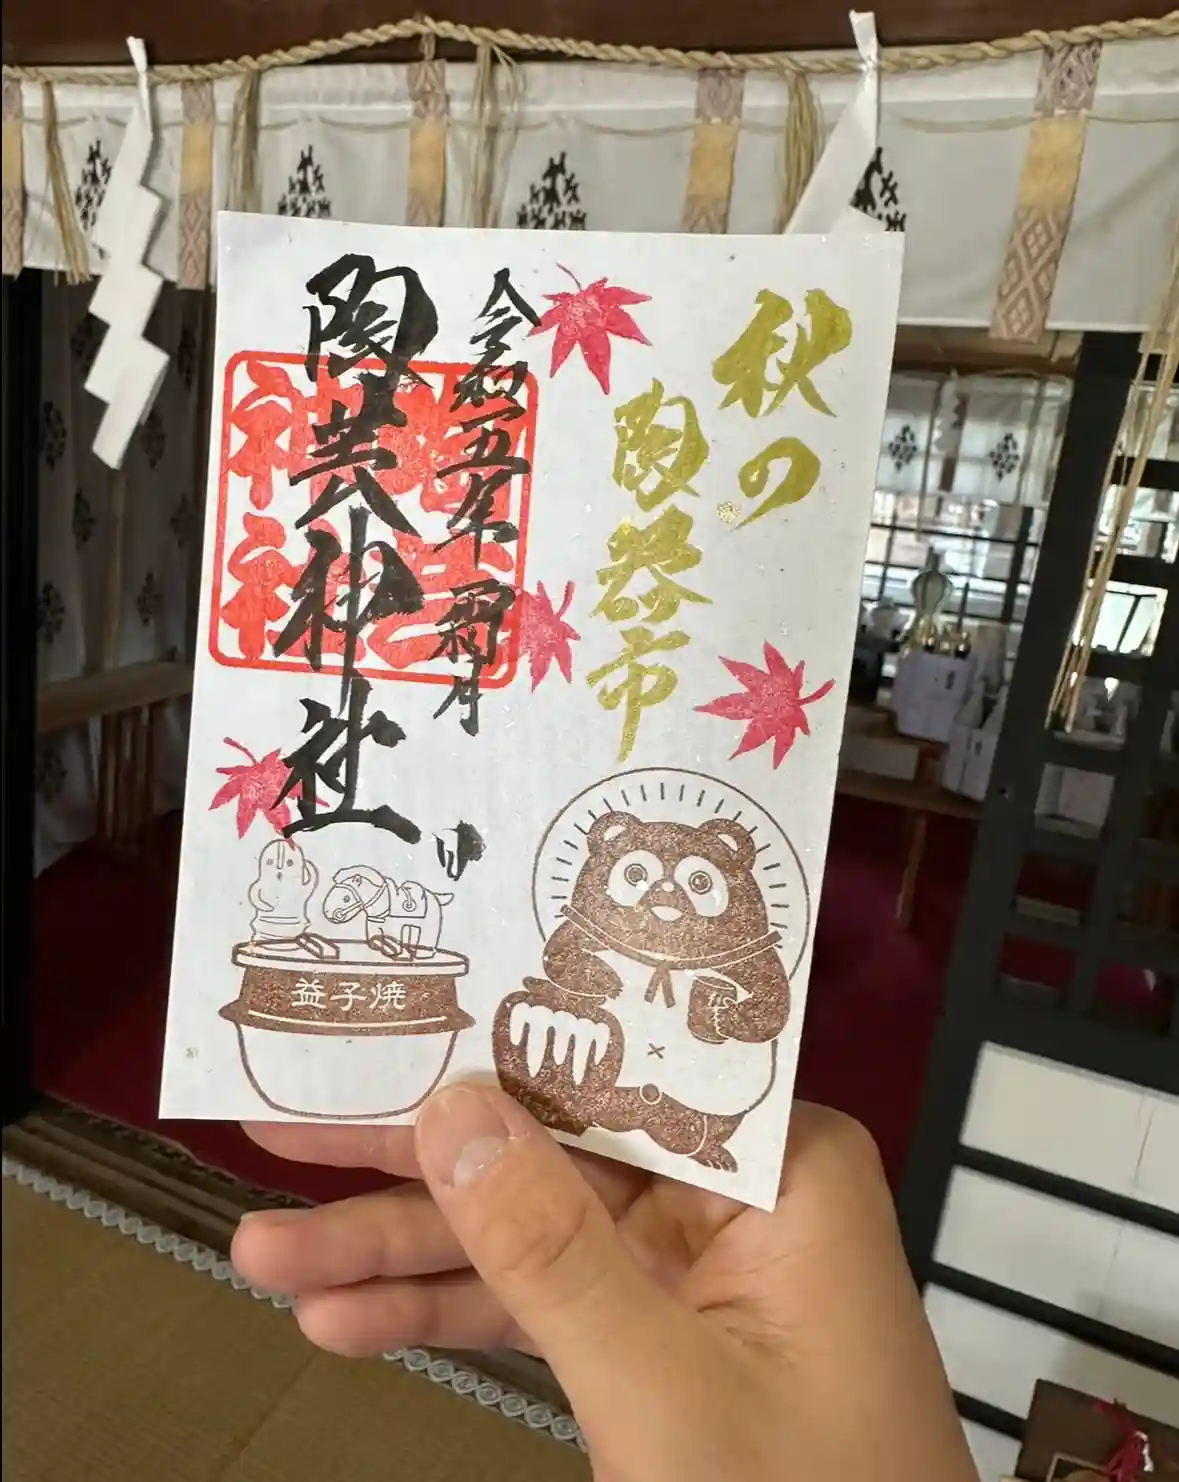 秋の
陶器市
令和五年霜月
日
陶芸神社
益子焼